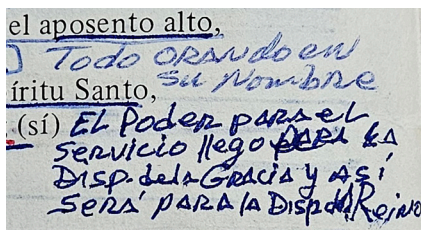 el aposento alto,
Todo ORANdo en
íritu Santo, su Nombre
(sí) EL PodeR paRa el
seRvicio llego PARA LA
Disp. de la GRAciA y Así
SeRá PARA lA Disp del Reino